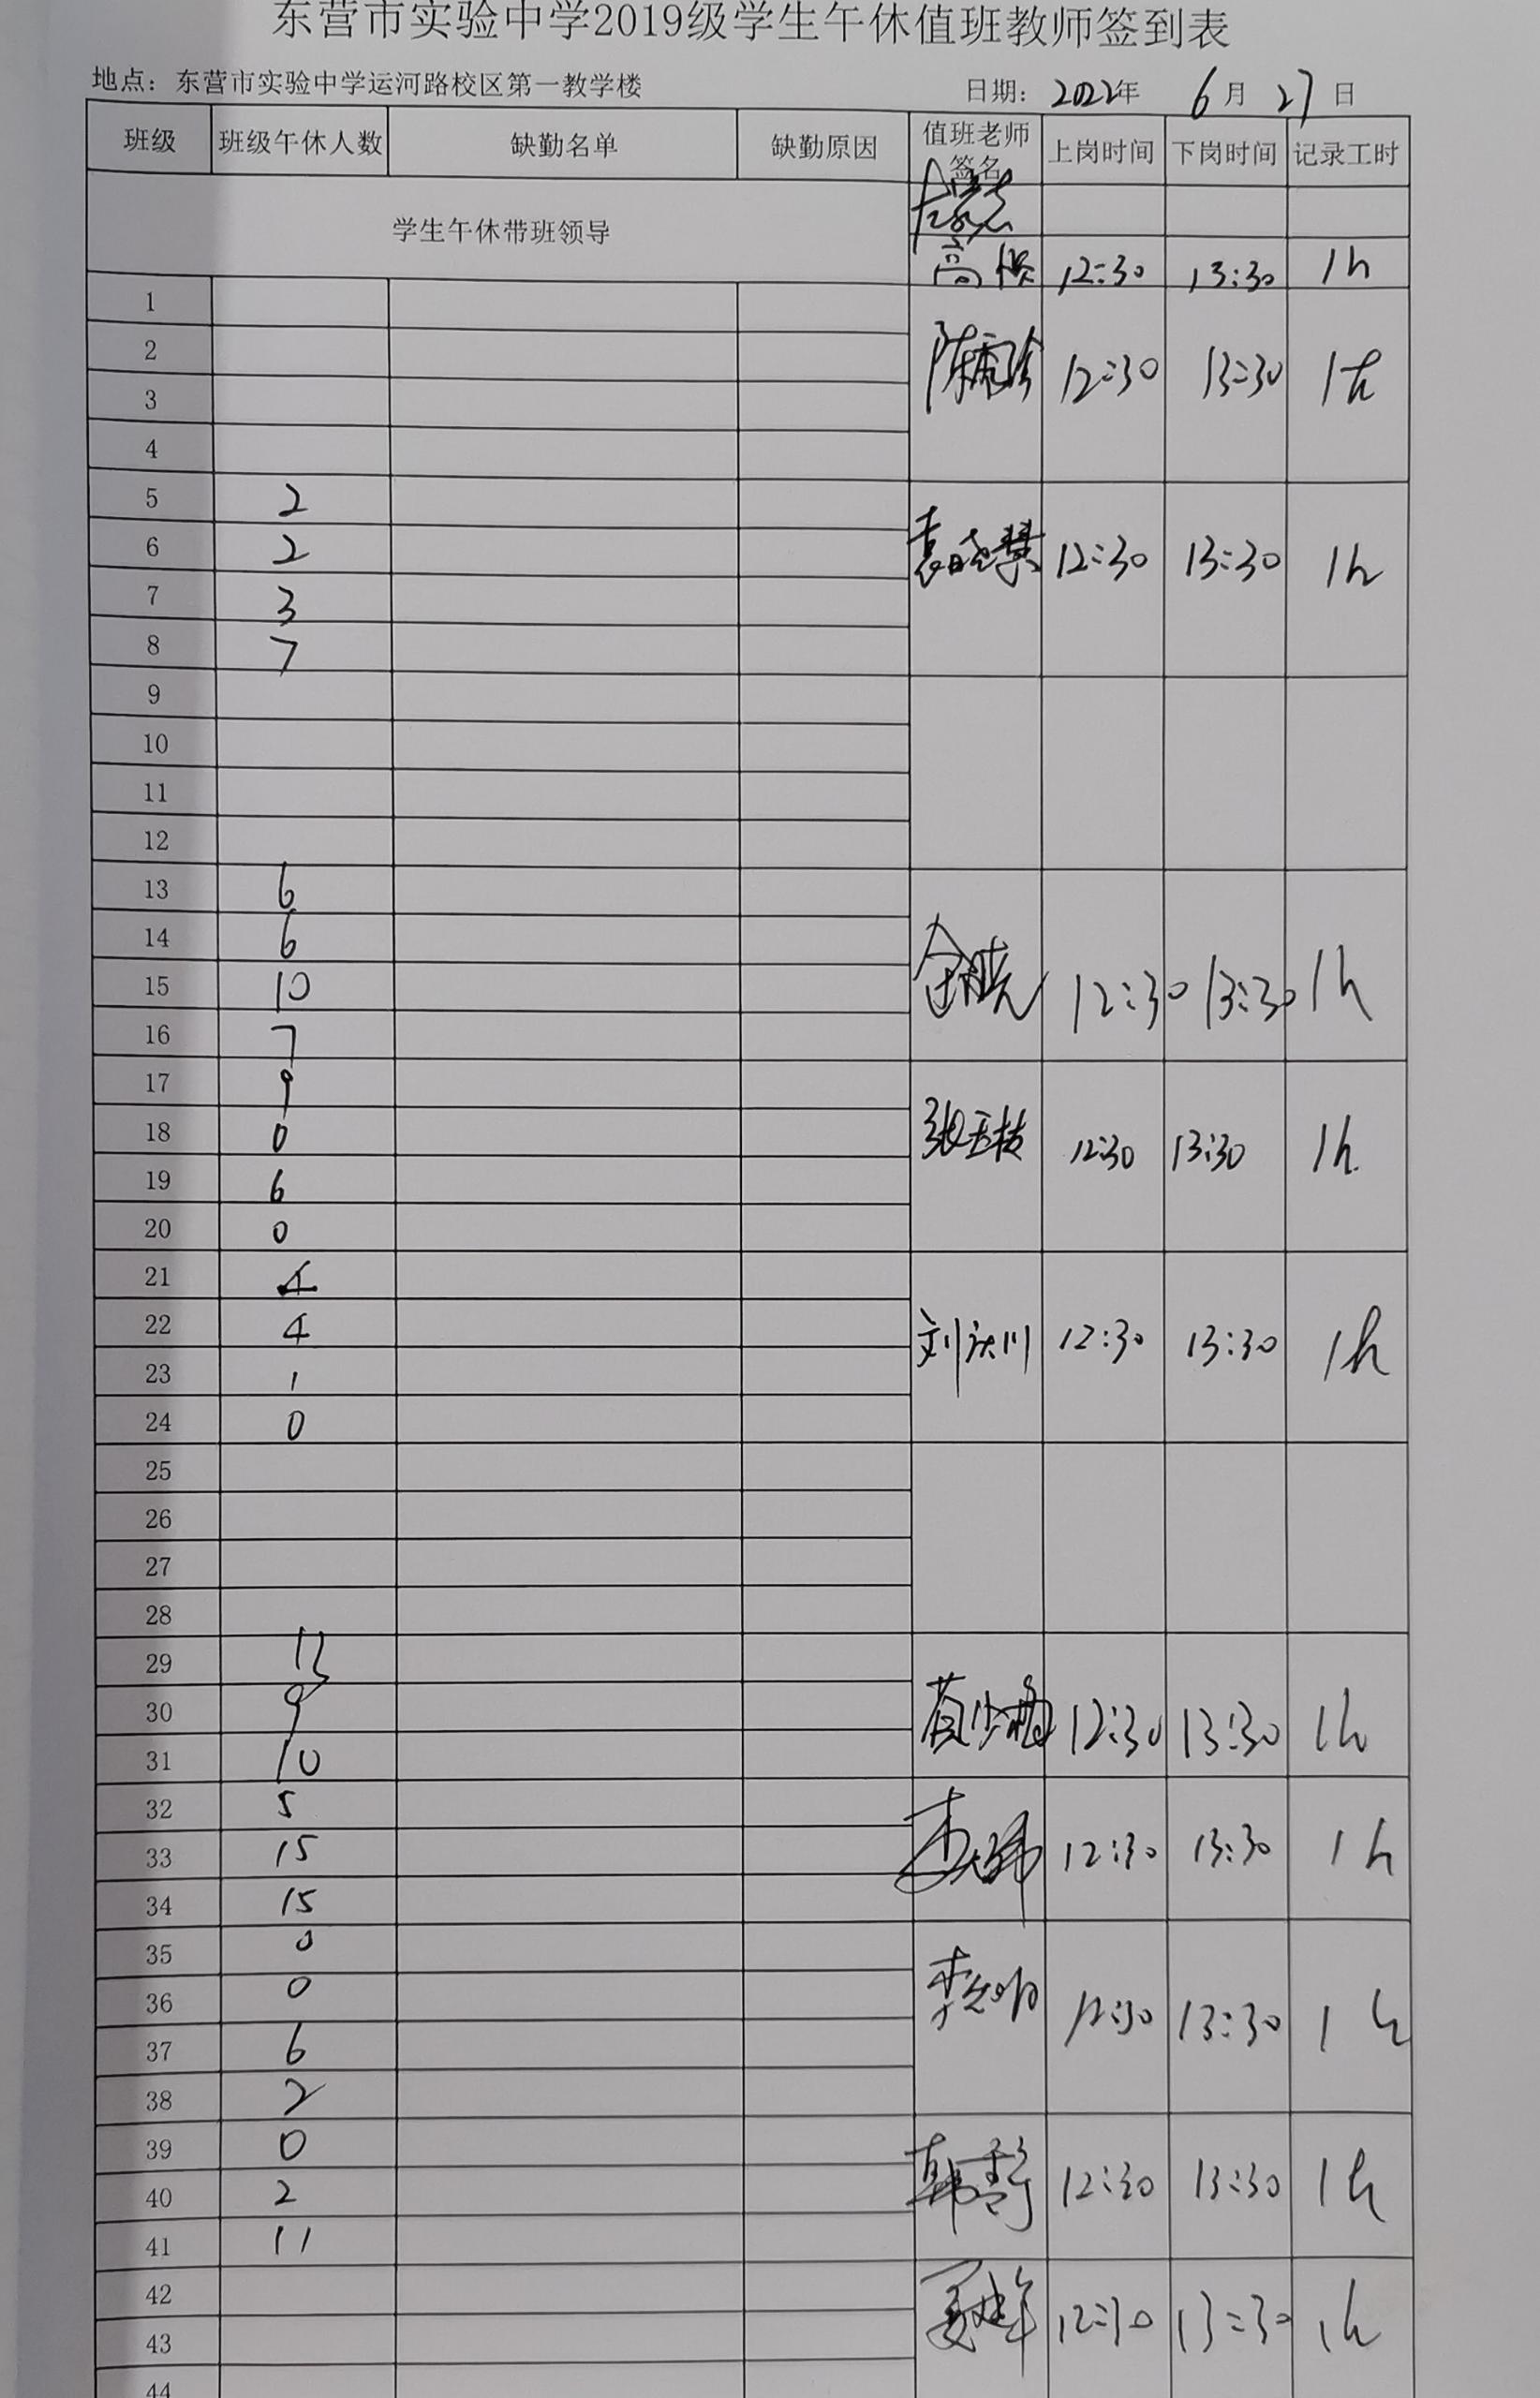 东营市实验中学2019级学生午休值班教师签到表
地点：东营市实验中学运河路校区第一教学楼 日期：2022年 6月 27日
班级 班级午休人数 缺勤名单 缺勤原因 值班老师签名 上岗时间 下岗时间 记录工时
学生午休带班领导
高 12:30 13:30 1h
1
2 陈 12:30 13:30 1h
3
4
5 2
6 2 袁晓慧 12:30 13:30 1h
7 3
8 7
9
10
11
12
13 6
14 6
15 10 12:30 13:30 1h
16 7
17 9
18 0 张玉枝 12:30 13:30 1h
19 6
20 0
21 4
22 4 刘庆川 12:30 13:30 1h
23 1
24 0
25
26
27
28
29 13
30 9 12:30 13:30 1h
31 10
32 5
33 15 李 12:30 13:30 1h
34 15
35 0
36 0 李 12:30 13:30 1h
37 6
38 2
39 0
40 2 韩雪 12:30 13:30 1h
41 11
42
43 12:30 13:30 1h
44